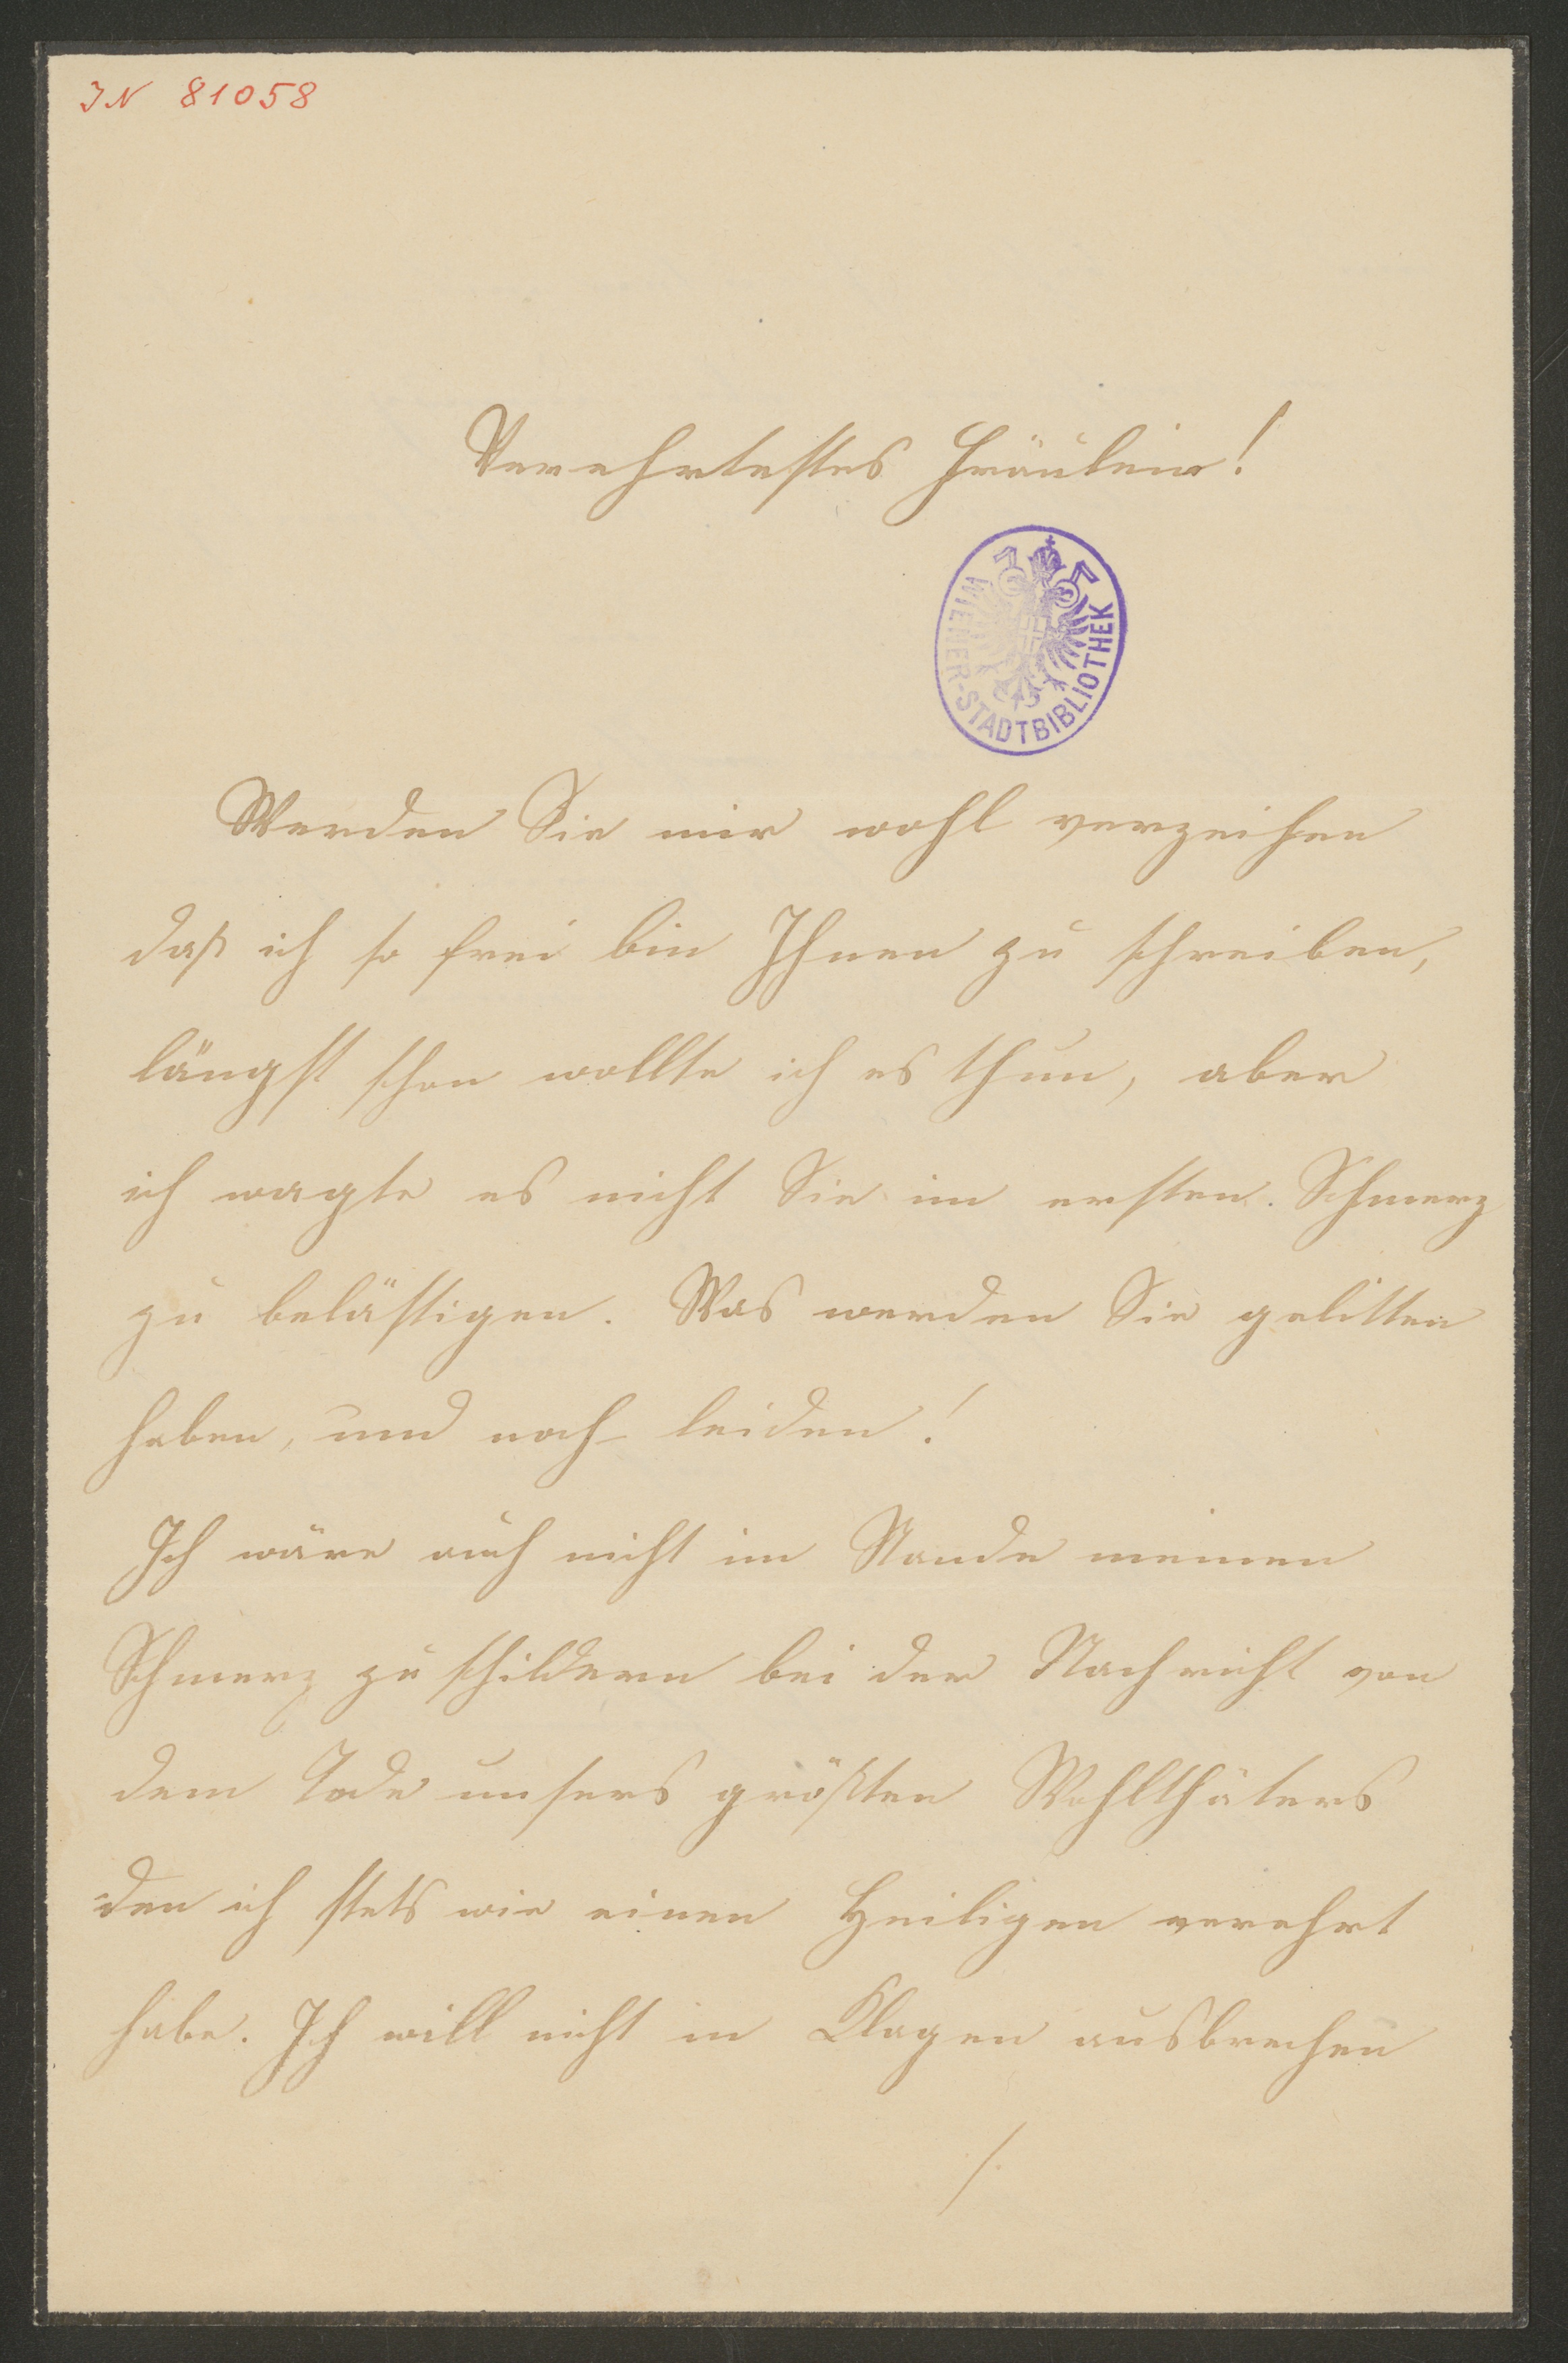 IN 81058
Verehrtestes Fräulein!
WIENER-STADTBIBLIOTHEK
Werden Sie mir wohl verzeihen
daß ich so frei bin Ihnen zu schreiben,
längst schon wollte ich es thun, aber
ich wagte es nicht Sie im ersten Schmerz
zu belästigen. Was werden Sie gelitten
haben, und noch leiden!
Ich wäre auch nicht im Stande meinen
Schmerz zu schildern bei der Nachricht von
dem Tode unsers größten Wohlthäters
den ich stets wie einen Heiligen verehrt
habe. Ich will nicht in Klagen ausbrechen
./.